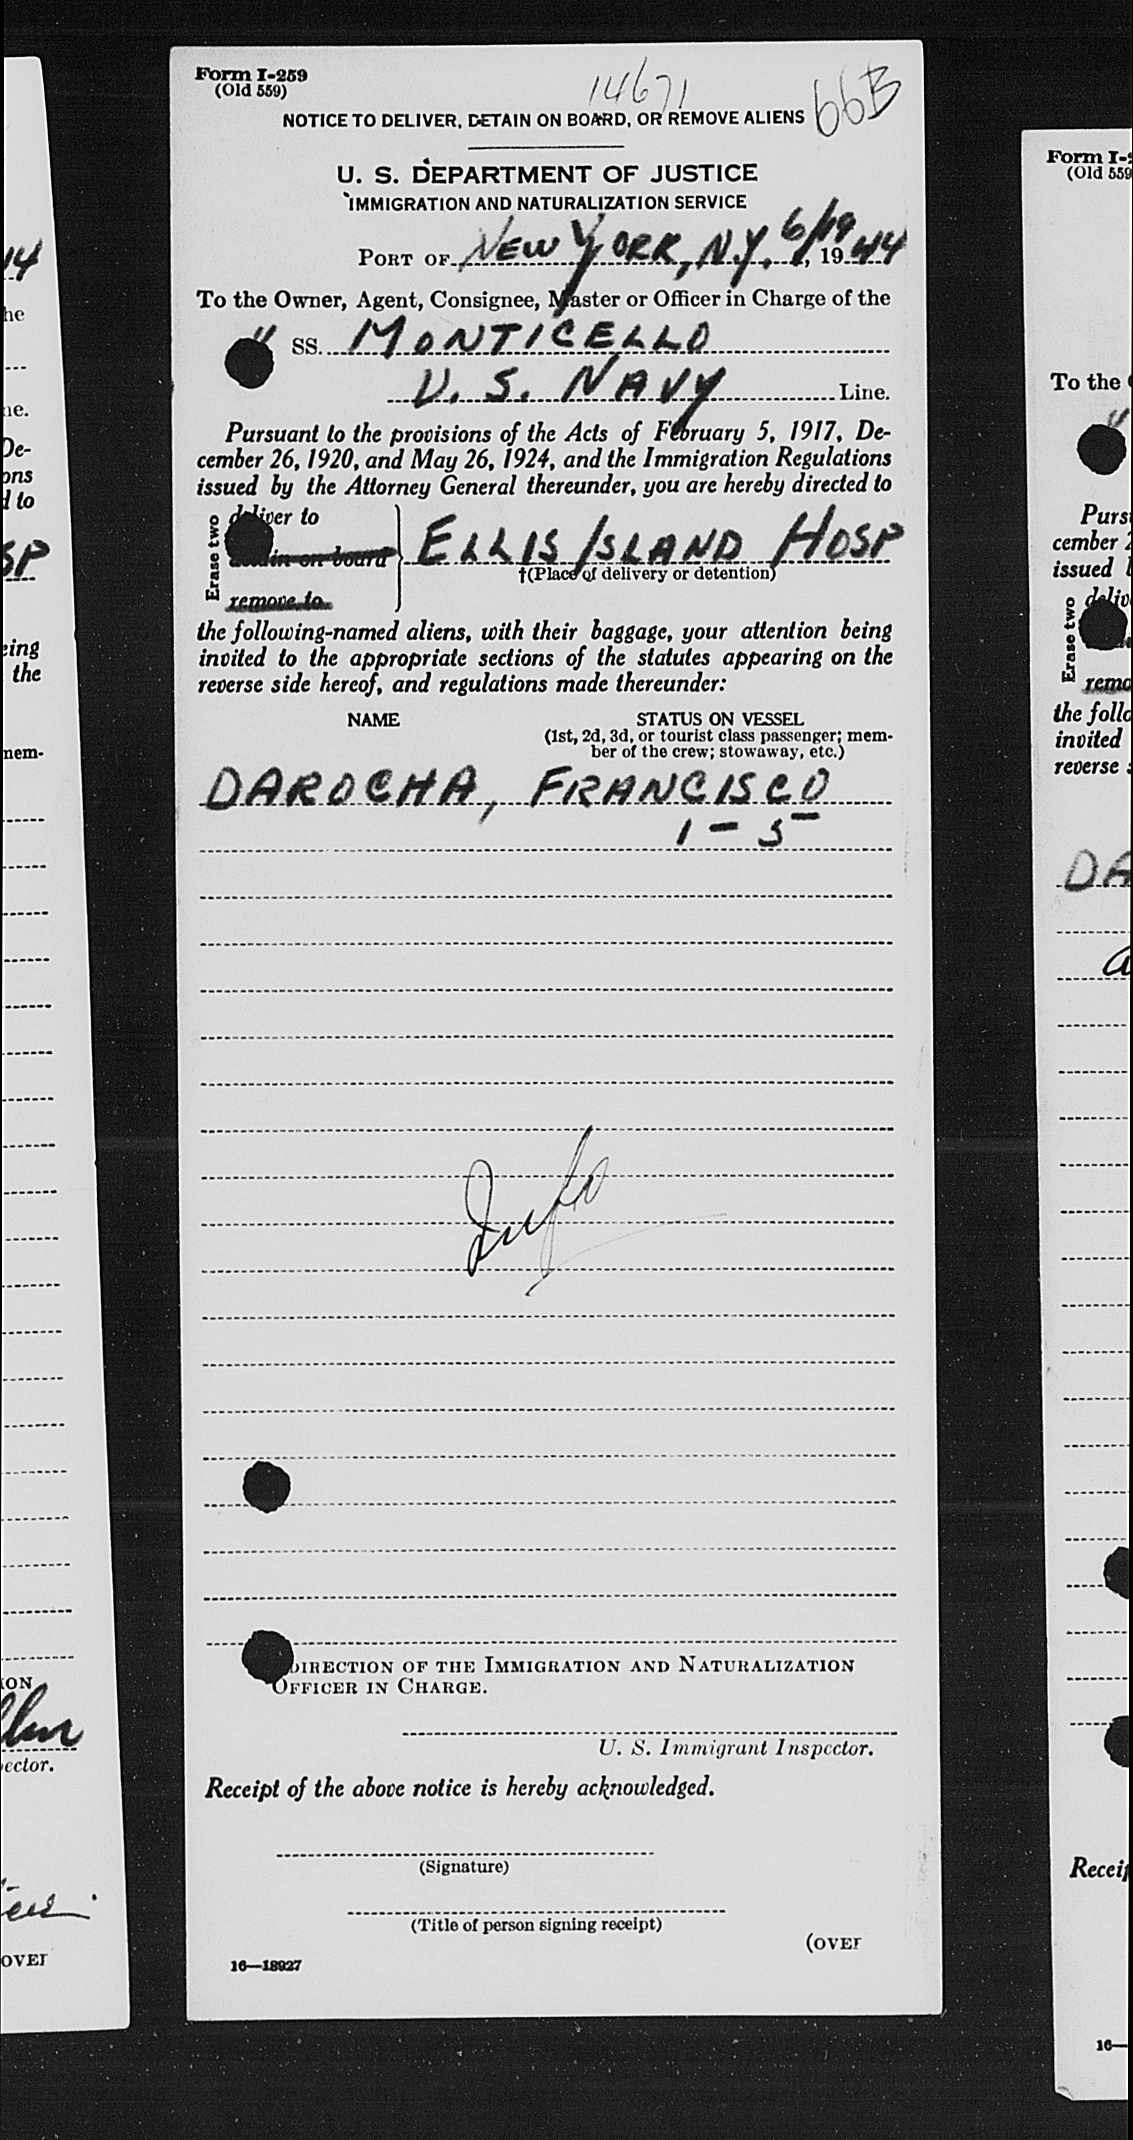 Form I-259
(Old 559)
14671
66B
NOTICE TO DELIVER, DETAIN ON BOARD, OR REMOVE ALIENS
U. S. DEPARTMENT OF JUSTICE
IMMIGRATION AND NATURALIZATION SERVICE
PORT OF NEW YORK, N.Y. 6/19, 1944
To the Owner, Agent, Consignee, Master or Officer in Charge of the
" SS. MONTICELLO
U. S. NAVY Line.
Pursuant to the provisions of the Acts of February 5, 1917, De-
cember 26, 1920, and May 26, 1924, and the Immigration Regulations
issued by the Attorney General thereunder, you are hereby directed to
Erase two
deliver to
in on board
remove to
ELLIS ISLAND HOSP
†(Place of delivery or detention)
the following-named aliens, with their baggage, your attention being
invited to the appropriate sections of the statutes appearing on the
reverse side hereof, and regulations made thereunder:
NAME STATUS ON VESSEL
(1st, 2d, 3d, or tourist class passenger; mem-
ber of the crew; stowaway, etc.)
DAROCHA, FRANCISCO
1 - 5
DIRECTION OF THE IMMIGRATION AND NATURALIZATION
OFFICER IN CHARGE.
U. S. Immigrant Inspector.
Receipt of the above notice is hereby acknowledged.
(Signature)
(Title of person signing receipt)
(OVER
16—18927
14
he
ne.
De-
ons
d to
SP
eing
the
mem-
ION
ector.
OVER
Form I-
(Old 559
To the
"
Purs
cember 2
issued
Erase two
deliv
remo
the follo
invited
reverse
DA
Receip
16—